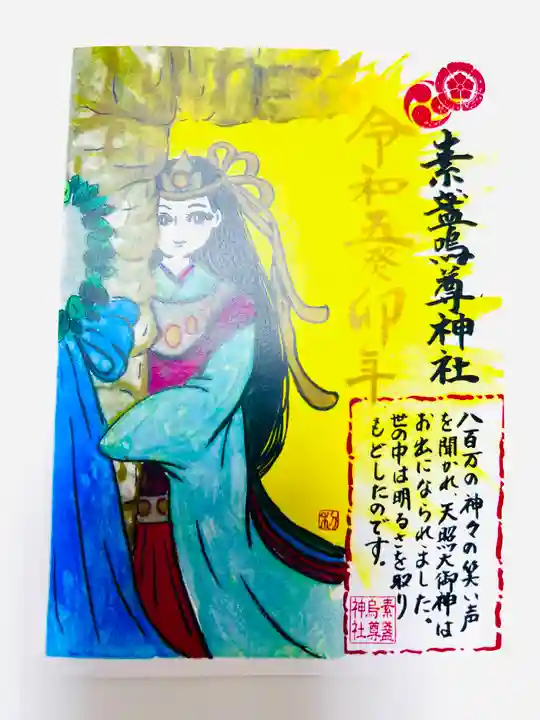 素盞嗚尊神社
令和五癸卯年
八百万の神々の笑い声
を聞かれ、天照大御神は
お出になられました。
世の中は明るさを取り
もどしたのです。
素盞
烏尊
神社